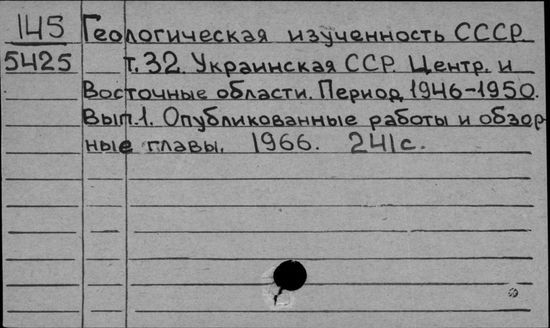 145 Геологическая изученность СССР.
5425 т.32. Украинская ССР. Центр. и
Восточные области. Период 1946-1950.
Вып.1. Опубликованные работы и обзор-
ные главы. 1966. 241с.